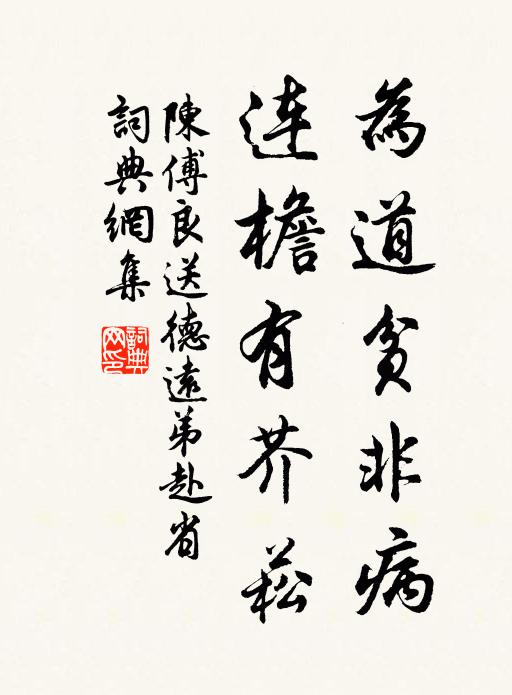 為道貧非病
連檐有芥菘
陳傅良送德遠弟赴省
詞典網集
詞典網印